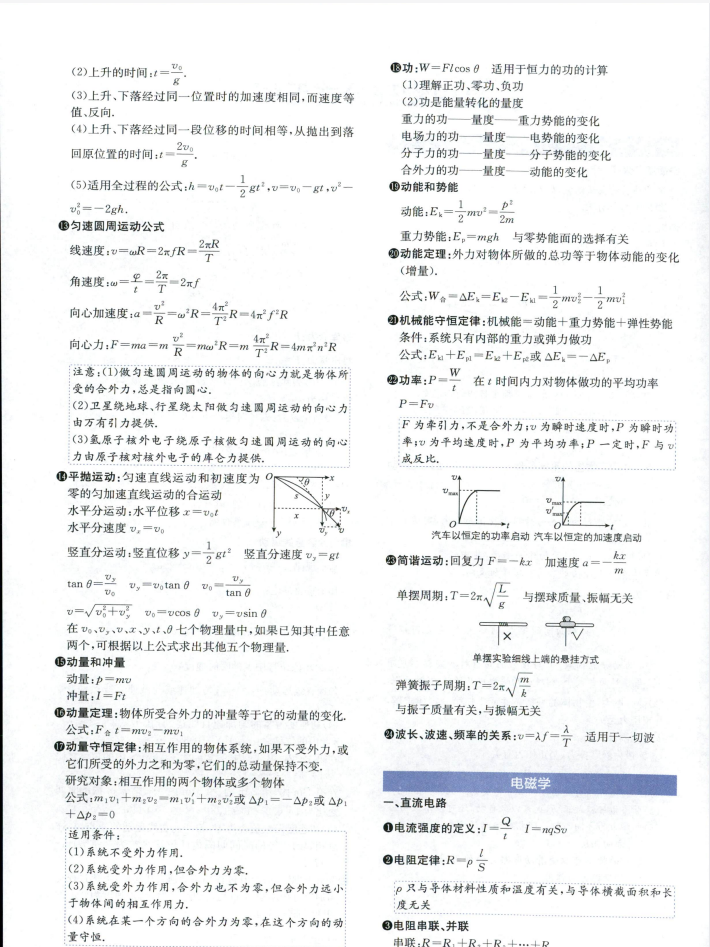 (2)上升的时间:t=v₀/g.
(3)上升、下落经过同一位置时的加速度相同,而速度等
值、反向.
(4)上升、下落经过同一段位移的时间相等,从抛出到落
回原位置的时间:t=2v₀/g.
(5)适用全过程的公式:h=v₀t-1/2gt²,v=v₀-gt,v²-
v₀²=-2gh.
⓭匀速圆周运动公式
线速度:v=ωR=2πfR=2πR/T
角速度:ω=φ/t=2π/T=2πf
向心加速度:a=v²/R=ω²R=4π²/T²R=4π²f²R
向心力:F=ma=mv²/R=mω²R=m4π²/T²R=4mπ²n²R
注意:(1)做匀速圆周运动的物体的向心力就是物体所
受的合外力,总是指向圆心.
(2)卫星绕地球、行星绕太阳做匀速圆周运动的向心力
由万有引力提供.
(3)氢原子核外电子绕原子核做匀速圆周运动的向心
力由原子核对核外电子的库仑力提供.
⓮平抛运动:匀速直线运动和初速度为
零的匀加速直线运动的合运动
水平分运动:水平位移x=v₀t
水平分速度vₓ=v₀
O x θ s y x vₓ θ v_y v y
竖直分运动:竖直位移y=1/2gt² 竖直分速度v_y=gt
tan θ=v_y/v₀ v_y=v₀tan θ v₀=v_y/tan θ
v=√(v₀²+v_y²) v₀=vcos θ v_y=vsin θ
在v₀、v_y、v、x、y、t、θ七个物理量中,如果已知其中任意
两个,可根据以上公式求出其他五个物理量.
⓯动量和冲量
动量:p=mv
冲量:I=Ft
⓰动量定理:物体所受合外力的冲量等于它的动量的变化.
公式:F合t=mv₂-mv₁
⓱动量守恒定律:相互作用的物体系统,如果不受外力,或
它们所受的外力之和为零,它们的总动量保持不变.
研究对象:相互作用的两个物体或多个物体
公式:m₁v₁+m₂v₂=m₁v₁′+m₂v₂′或Δp₁=-Δp₂或Δp₁
+Δp₂=0
适用条件:
(1)系统不受外力作用.
(2)系统受外力作用,但合外力为零.
(3)系统受外力作用,合外力也不为零,但合外力远小
于物体间的相互作用力.
(4)系统在某一个方向的合外力为零,在这个方向的动
量守恒.
⓲功:W=Flcos θ 适用于恒力的功的计算
(1)理解正功、零功、负功
(2)功是能量转化的量度
重力的功——量度——重力势能的变化
电场力的功——量度——电势能的变化
分子力的功——量度——分子势能的变化
合外力的功——量度——动能的变化
⓳动能和势能
动能:Eₖ=1/2mv²=p²/2m
重力势能:Eₚ=mgh 与零势能面的选择有关
⓴动能定理:外力对物体所做的总功等于物体动能的变化
(增量).
公式:W合=ΔEₖ=Eₖ₂-Eₖ₁=1/2mv₂²-1/2mv₁²
㉑机械能守恒定律:机械能=动能+重力势能+弹性势能
条件:系统只有内部的重力或弹力做功
公式:Eₖ₁+Eₚ₁=Eₖ₂+Eₚ₂或ΔEₖ=-ΔEₚ
㉒功率:P=W/t 在t时间内力对物体做功的平均功率
P=Fv
F为牵引力,不是合外力;v为瞬时速度时,P为瞬时功
率;v为平均速度时,P为平均功率;P一定时,F与v
成反比.
v vmax O t v vmax v′max O t
汽车以恒定的功率启动 汽车以恒定的加速度启动
㉓简谐运动:回复力F=-kx 加速度a=-kx/m
单摆周期:T=2π√(L/g) 与摆球质量、振幅无关
× √
单摆实验细线上端的悬挂方式
弹簧振子周期:T=2π√(m/k)
与振子质量有关,与振幅无关
㉔波长、波速、频率的关系:v=λf=λ/T 适用于一切波
电磁学
一、直流电路
❶电流强度的定义:I=Q/t I=nqSv
❷电阻定律:R=ρl/S
ρ只与导体材料性质和温度有关,与导体横截面积和长
度无关
❸电阻串联、并联
串联:R=R₁+R₂+R₃+…+Rₙ